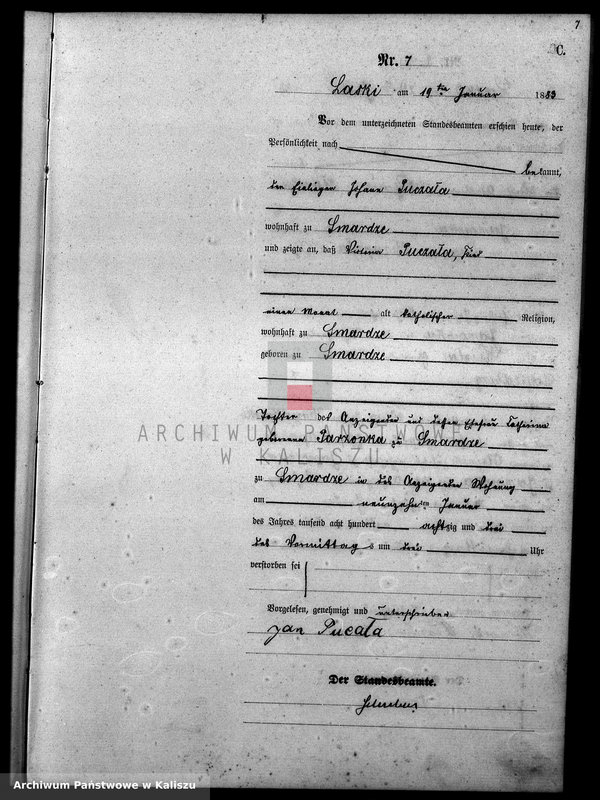 7
C.
Nr. 7
Laski am 19ten Januar 1883
Vor dem unterzeichneten Standesbeamten erschien heute, der
Persönlichkeit nach
bekannt,
den Einlieger Johann Puczała
wohnhaft zu Smardze
und zeigte an, daß Puczała, Kind
einen Monat alt katholischer Religion,
wohnhaft zu Smardze
geboren zu Smardze
Tochter des Anzeigenden und dessen Ehefrau Catharina
geborenen Parzonka zu Smardze
ARCHIWUM PAŃSTWOWE
W KALISZU
zu Smardze in des Anzeigenden Wohnung
am neunzehnten Januar
des Jahres tausend acht hundert achtzig und drei
des Vormittags um drei Uhr
verstorben sei
Vorgelesen, genehmigt und unterschrieben
Jan Pucała
Der Standesbeamte.
Archiwum Państwowe w Kaliszu